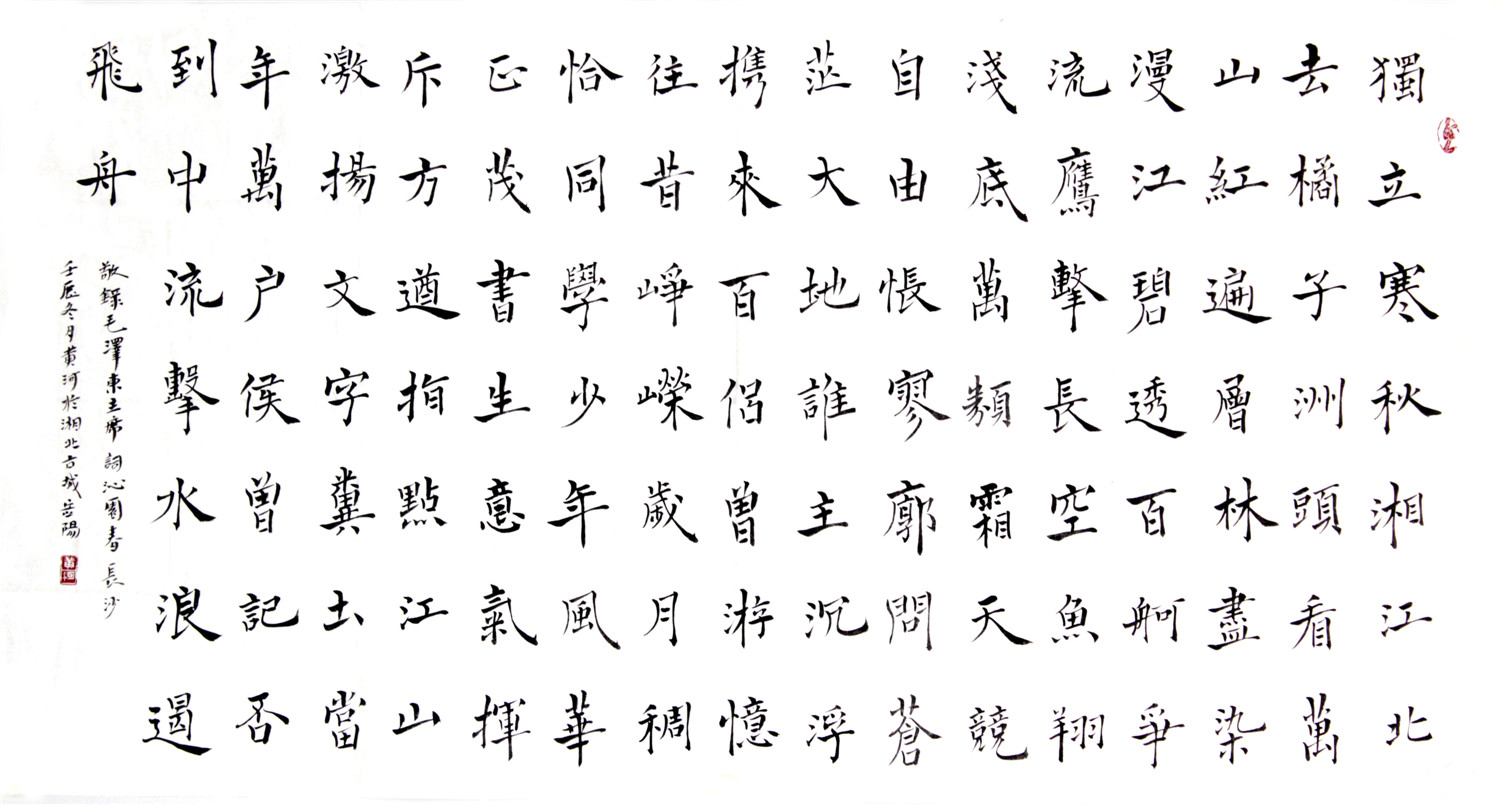 獨立寒秋湘江北
去橘子洲頭看萬
山紅遍層林盡染
漫江碧透百舸爭
流鷹擊長空魚翔
淺底萬類霜天競
自由悵寥廓問蒼
茫大地誰主沉浮
携來百侣曾游憶
往昔崢嶸歲月稠
恰同學少年風華
正茂書生意氣揮
斥方遒指點江山
激揚文字糞土當
年萬户侯曾記否
到中流擊水浪遏
飛舟
敬錄毛澤東主席詞沁園春長沙
壬辰冬月黄河於湘北古城岳陽